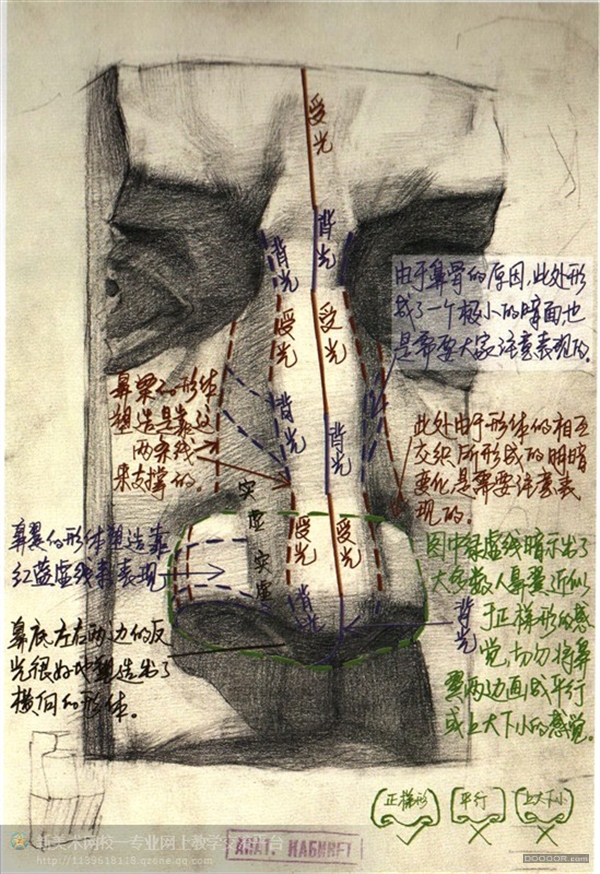 受光
背光
背光
受光
受光
背光
背光
受光
受光
背光
背光
实
虚
实
虚
由于鼻骨的原因,此处形
成了一个极小的暗面,也
是需要大家注意表现的。
鼻梁的形体
塑造是靠这
两条线
来支撑的。
此处由于形体的相互
交织所形成的明暗
变化是需要注意表
现的。
鼻翼的形体塑造靠
红蓝虚线来表现
鼻底左右两边的反
光很好地塑造出了
横向的形体。
图中绿虚线暗示出了
大多数人鼻翼近似
于正梯形的感
觉,切勿将鼻
翼两边画成平行
或上大下小的感觉。
正梯形
平行
上大下小
新美术网校-专业网上教学交流平台
http://1139618118.qzone.qq.com
АНАТ. КАБИНЕТ
DOOOOR.com